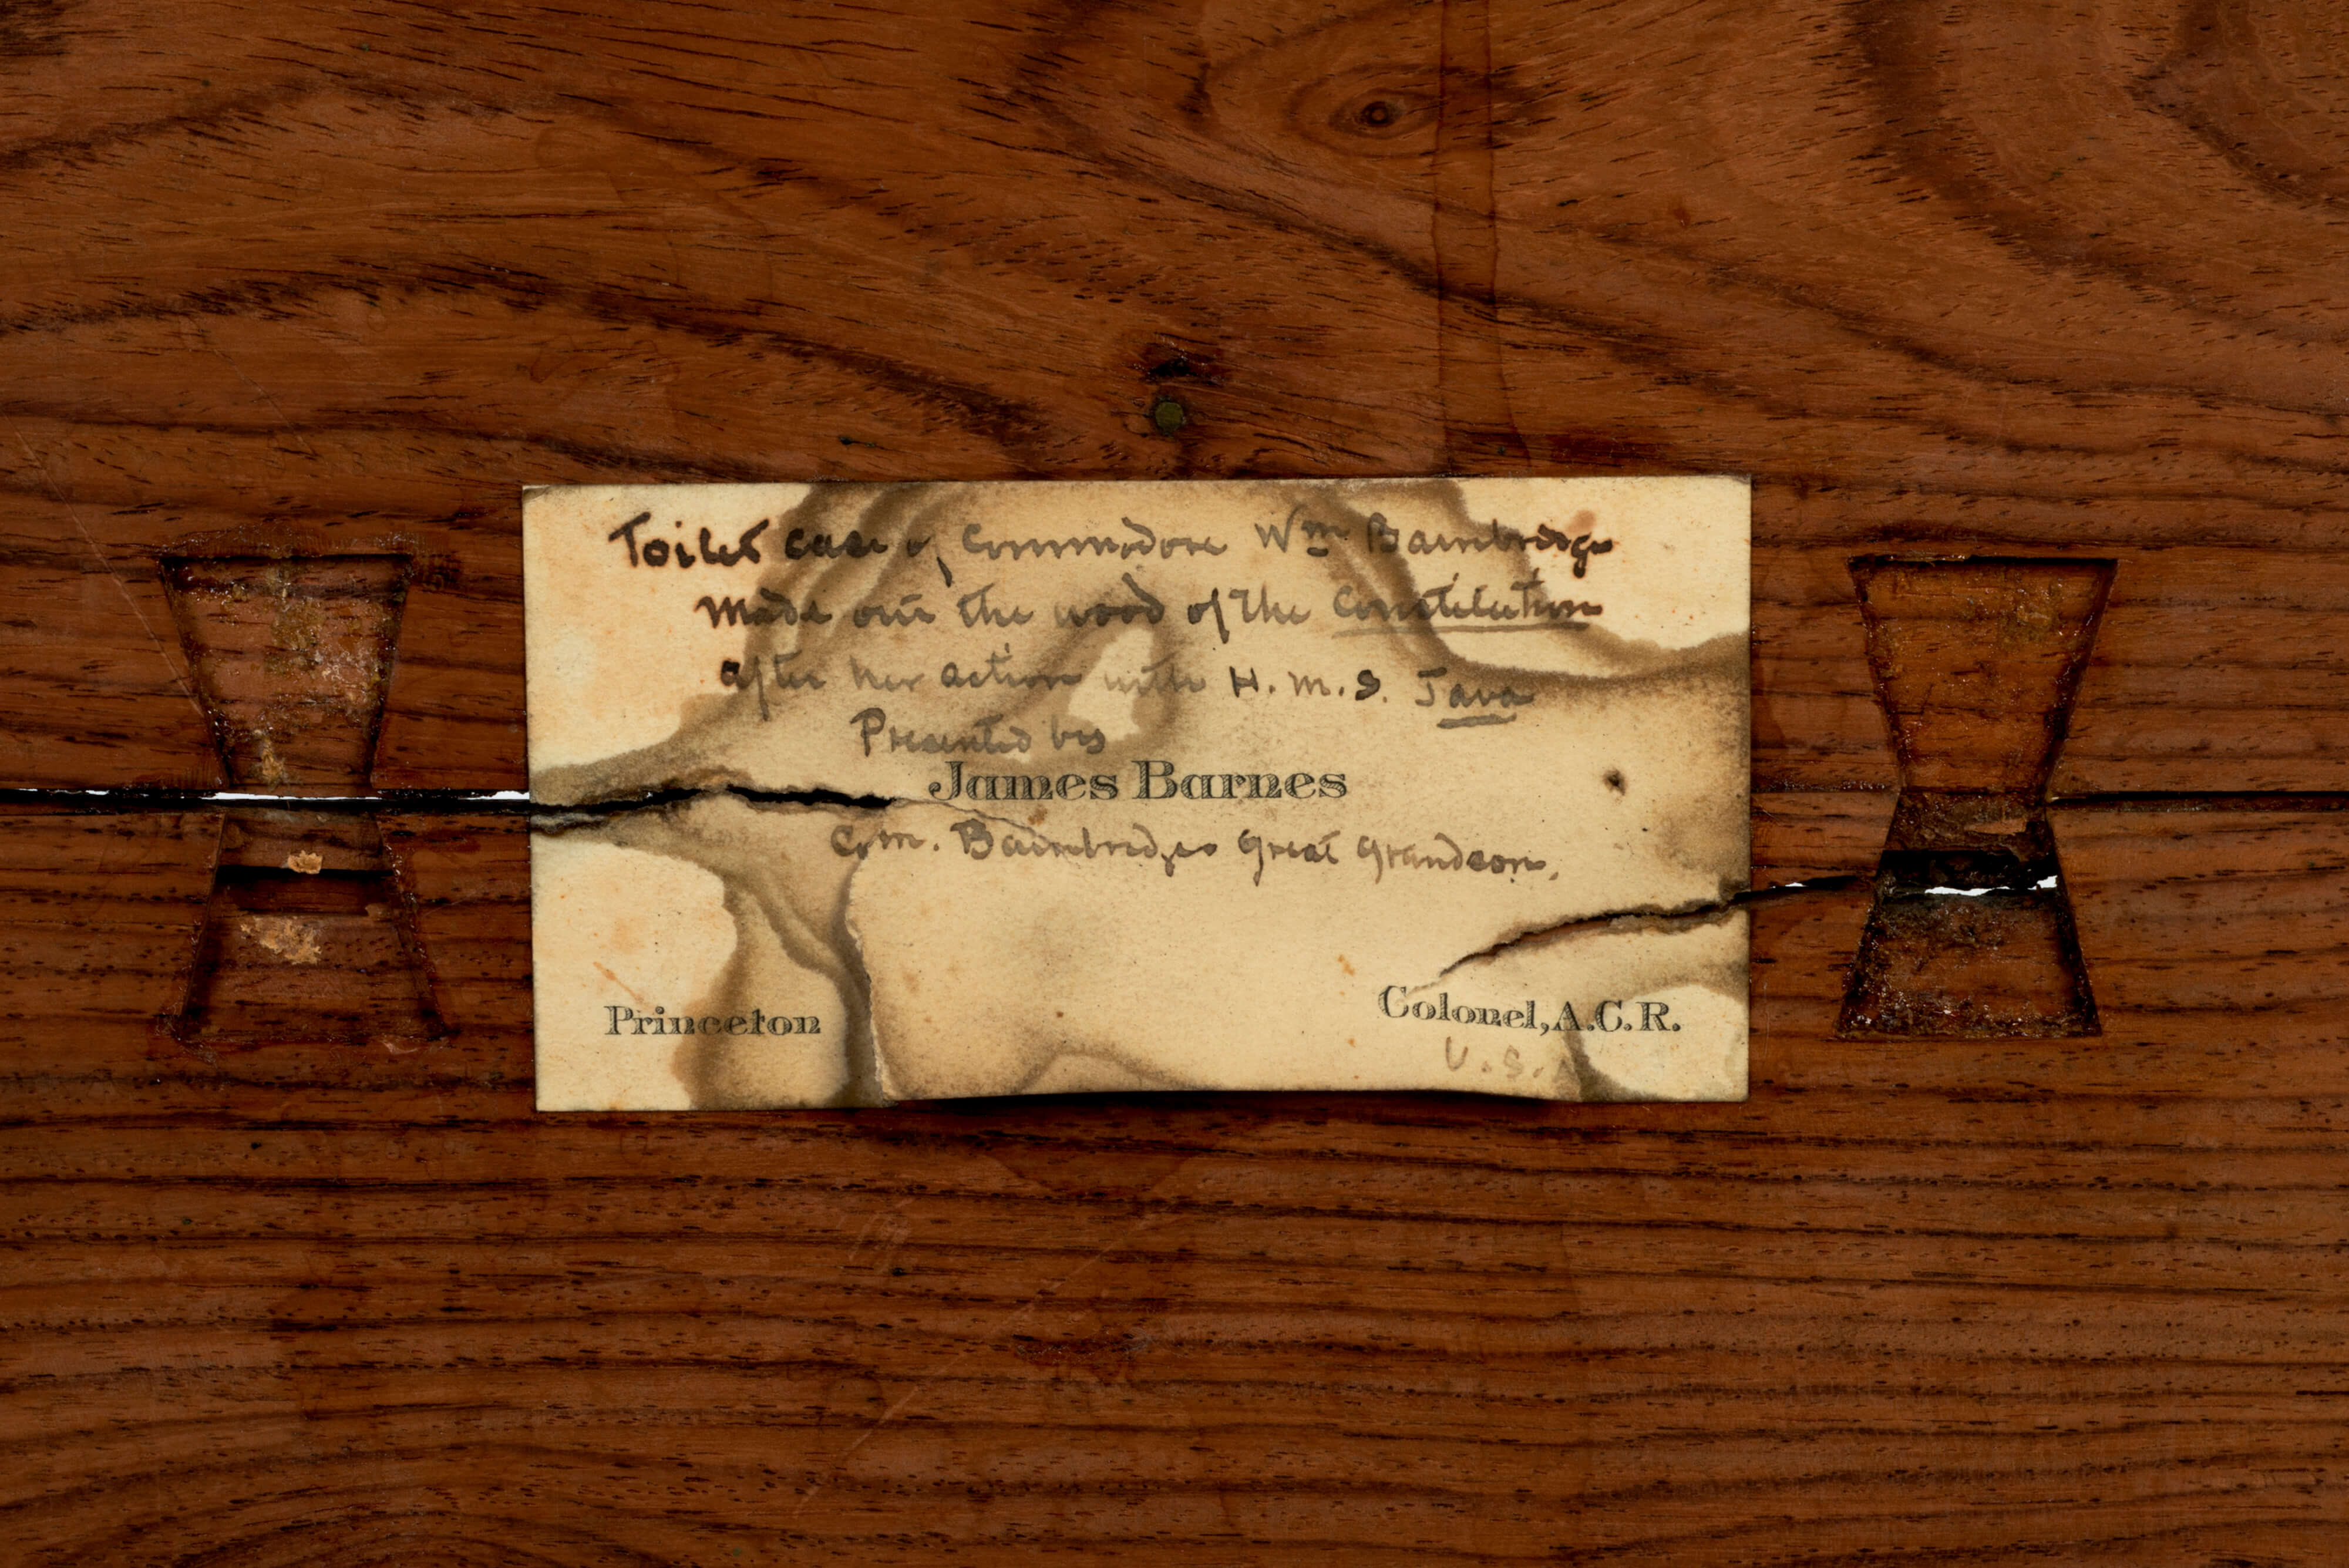 Toilet case of Commodore Wm Bainbridge
made out the wood of the Constitution
after her action with H.M.S. Java
Presented by
James Barnes
Com. Bainbridges Great Grandson.
Princeton
Colonel, A.C.R.
U.S.A